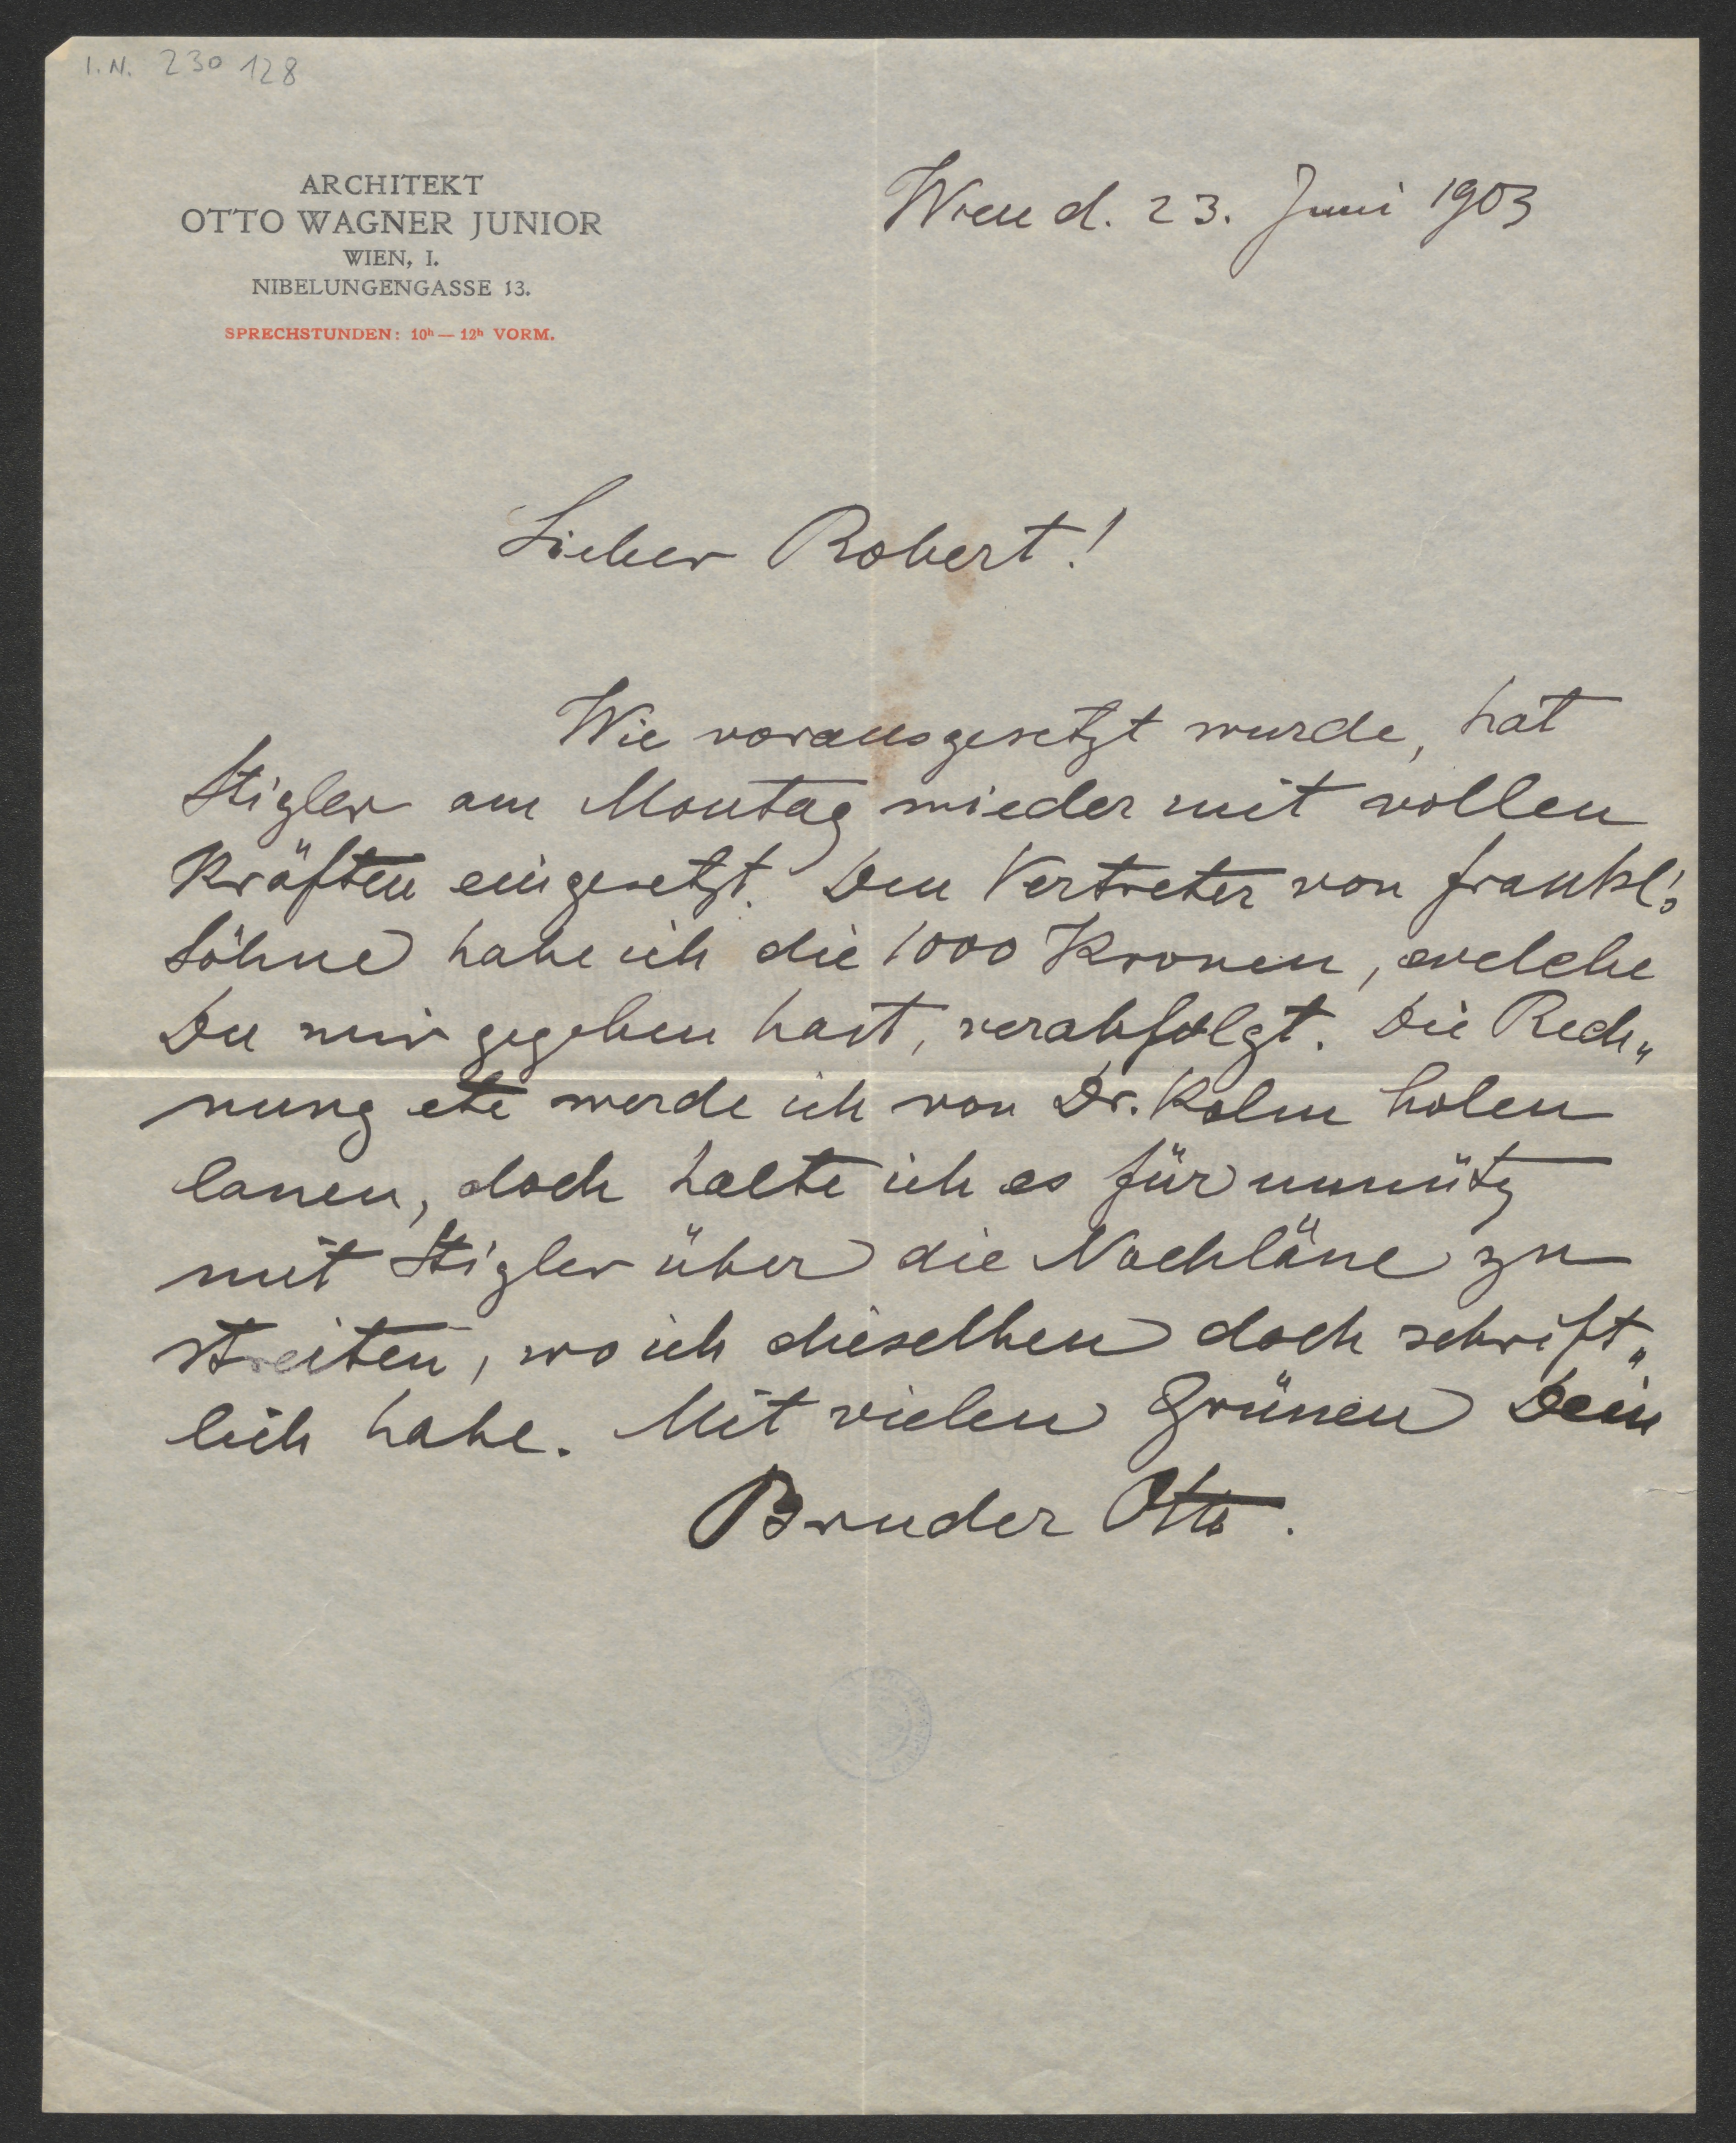 I.N. 230 128
ARCHITEKT
OTTO WAGNER JUNIOR
WIEN, I.
NIBELUNGENGASSE 13.
SPRECHSTUNDEN: 10h — 12h VORM.
Wien d. 23. Juni 1903
Lieber Robert!
Wie vorausgesetzt wurde, hat
Stigler am Montag wieder mit vollen
Kräften eingesetzt. Den Vertreter von Frankl's
Söhne habe ich die 1000 Kronen, welche
Du mir gegeben hast, verabfolgt. Die Rech„
nung etc werde ich von Dr. Kolm holen
lassen, doch halte ich es für unnütz
mit Stigler über die Nachlässe zu
streiten, wo ich dieselben doch schrift„
lich habe. Mit vielen Grüssen Dein
Bruder Otto.